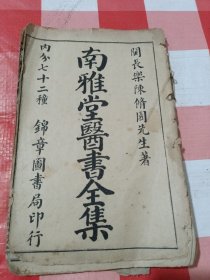 閩長樂陳修園先生著
南雅堂醫書全集
內分七十二種
錦章圖書局印行